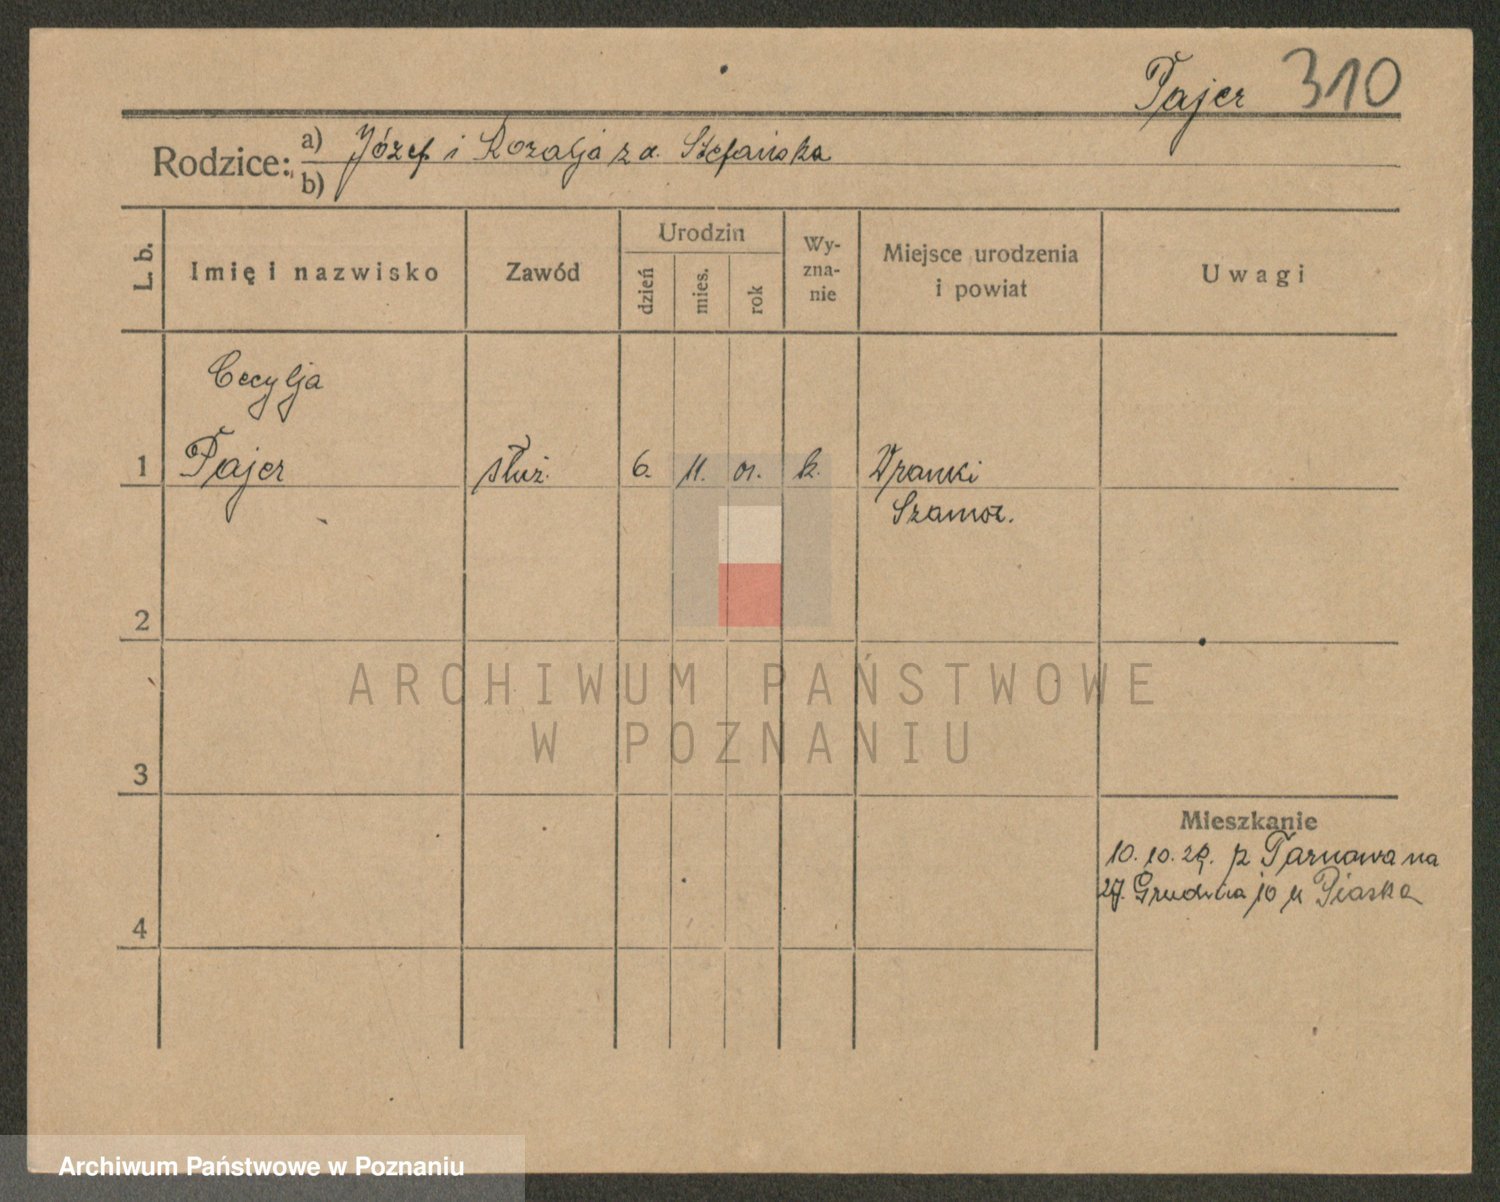 Pajer 310
Rodzice: a) Józef i Rozalja z d. Stefańska
b)
L. b. Imię i nazwisko Zawód Urodzin dzień mies. rok Wy-zna-nie Miejsce urodzenia i powiat Uwagi
Cecylja
1 Pajer służ. 6. 11. 01. k. Wronki
Szamot.
2
3
4
Mieszkanie
10. 10. 29. z Tarnowa na
27 Grudnia 10 u Piaska
ARCHIWUM PAŃSTWOWE
W POZNANIU
Archiwum Państwowe w Poznaniu